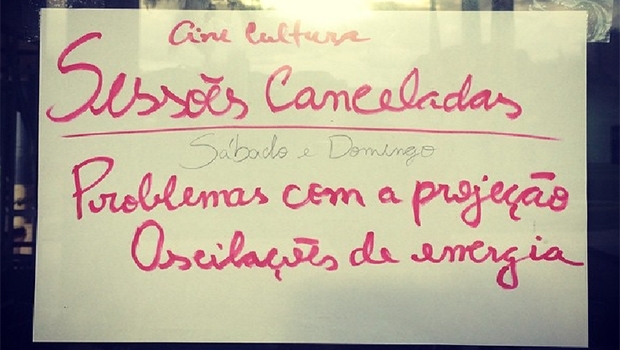 Cine Cultura
Sessões Canceladas
Sábado e Domingo
Problemas com a projeção
Oscilações de energia